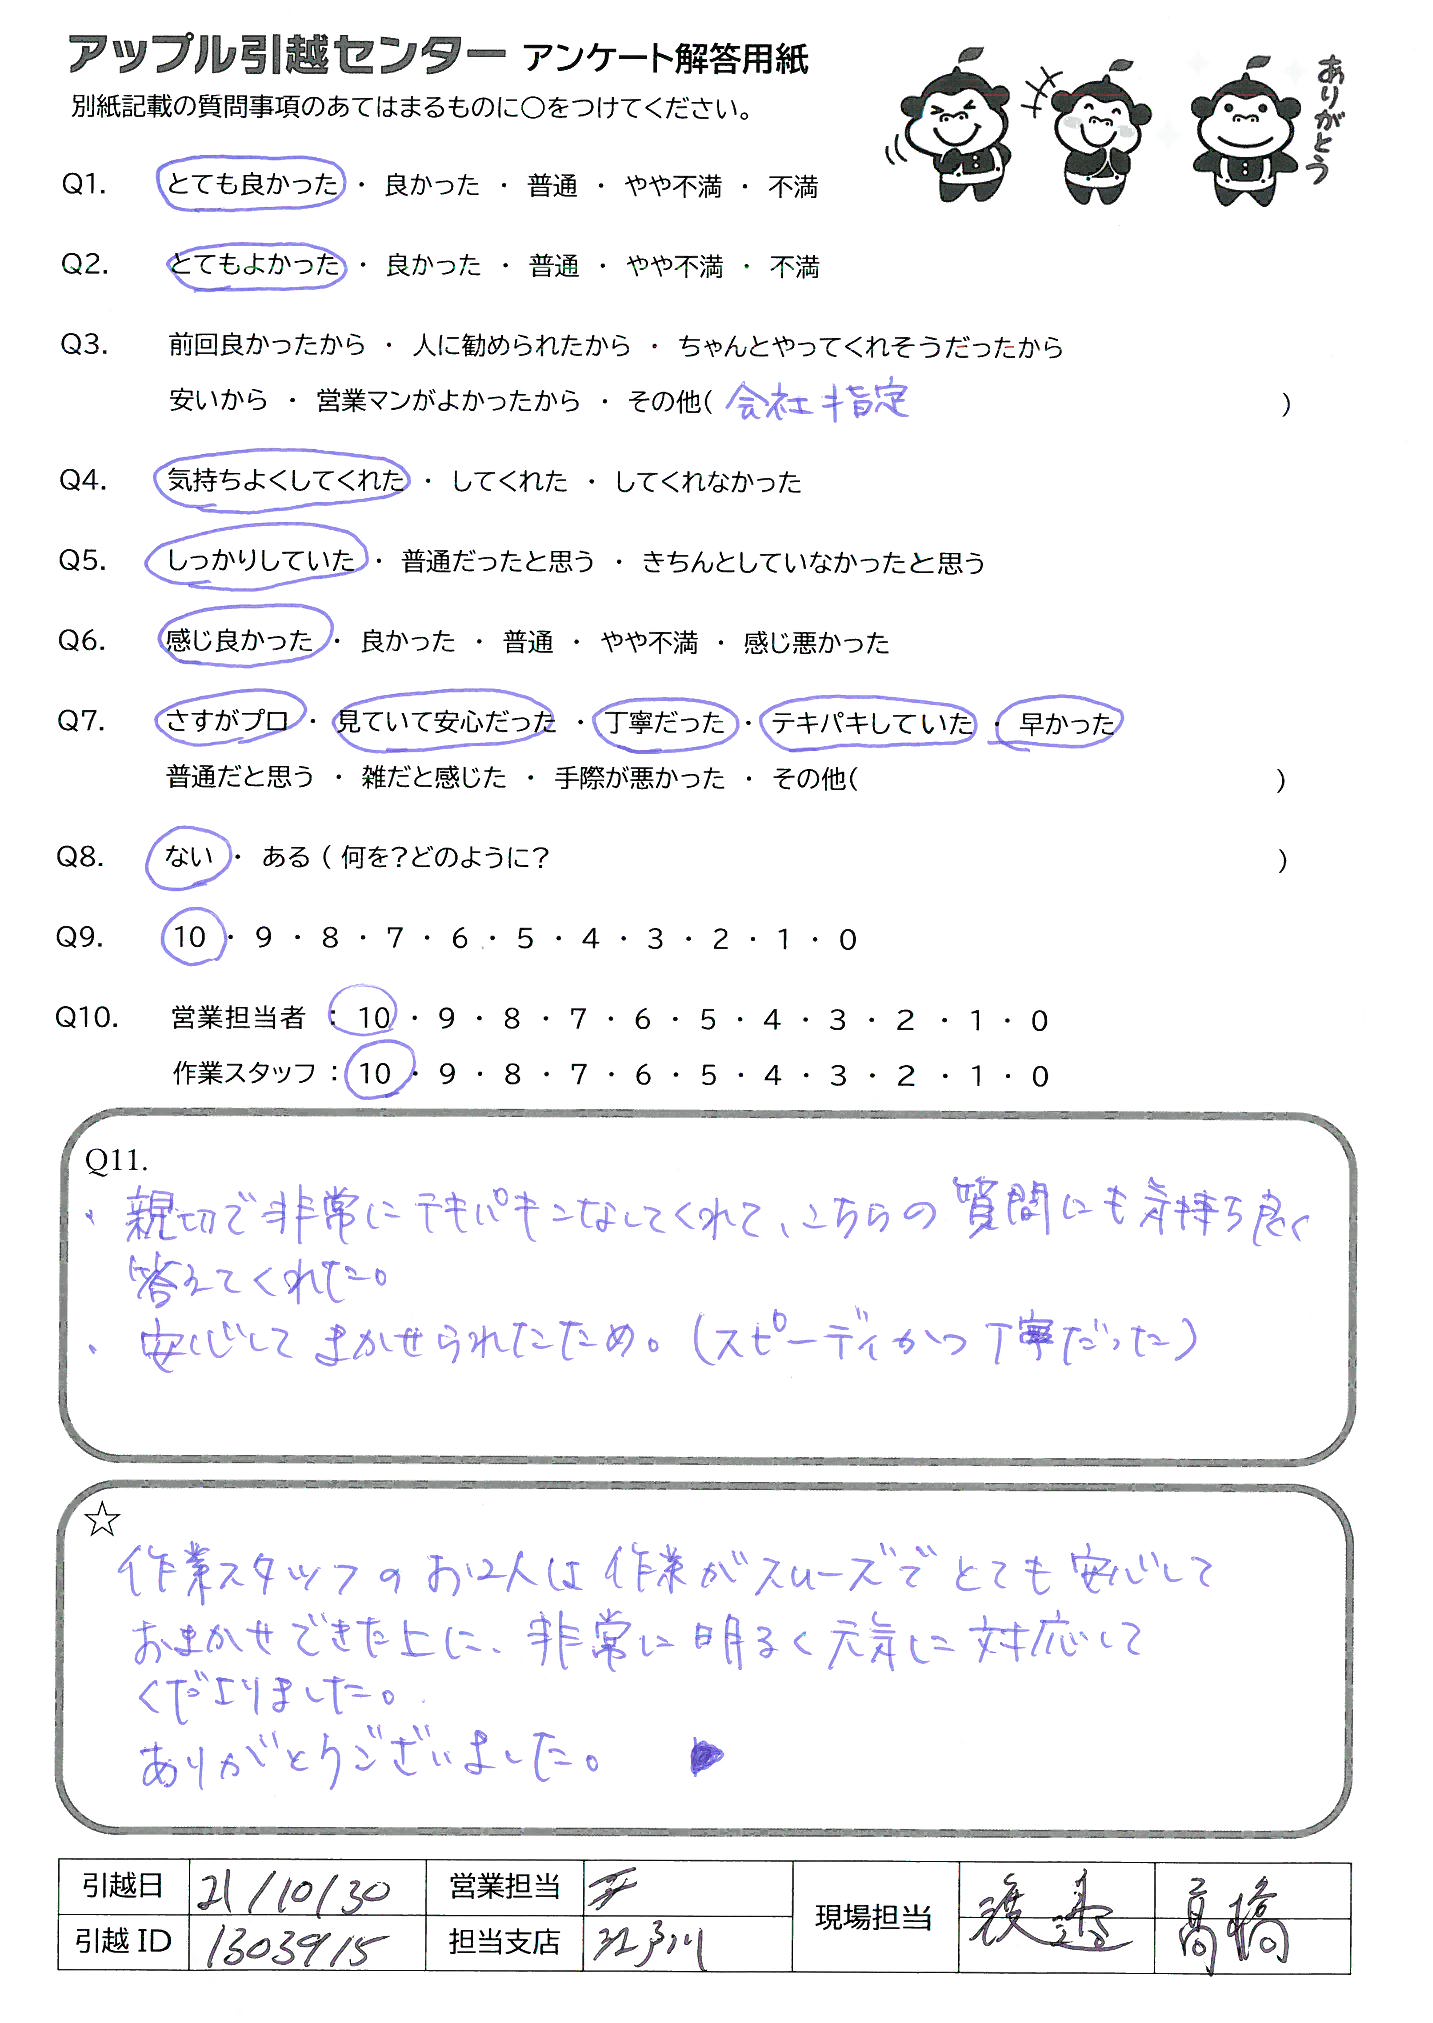 アップル引越センター アンケート解答用紙
別紙記載の質問事項のあてはまるものに○をつけてください。
ありがとう
Q1. とても良かった ・ 良かった ・ 普通 ・ やや不満 ・ 不満
Q2. とてもよかった ・ 良かった ・ 普通 ・ やや不満 ・ 不満
Q3. 前回良かったから ・ 人に勧められたから ・ ちゃんとやってくれそうだったから
安いから ・ 営業マンがよかったから ・ その他( 会社指定 )
Q4. 気持ちよくしてくれた ・ してくれた ・ してくれなかった
Q5. しっかりしていた ・ 普通だったと思う ・ きちんとしていなかったと思う
Q6. 感じ良かった ・ 良かった ・ 普通 ・ やや不満 ・ 感じ悪かった
Q7. さすがプロ ・ 見ていて安心だった ・ 丁寧だった ・ テキパキしていた ・ 早かった
普通だと思う ・ 雑だと感じた ・ 手際が悪かった ・ その他( )
Q8. ない ・ ある ( 何を?どのように? )
Q9. 10 ・ 9 ・ 8 ・ 7 ・ 6 ・ 5 ・ 4 ・ 3 ・ 2 ・ 1 ・ 0
Q10. 営業担当者 : 10 ・ 9 ・ 8 ・ 7 ・ 6 ・ 5 ・ 4 ・ 3 ・ 2 ・ 1 ・ 0
作業スタッフ : 10 ・ 9 ・ 8 ・ 7 ・ 6 ・ 5 ・ 4 ・ 3 ・ 2 ・ 1 ・ 0
Q11.
・ 親切で非常にテキパキこなしてくれて、こちらの質問にも気持ち良く
答えてくれた。
・ 安心してまかせられたため。(スピーディかつ丁寧だった)
☆
作業スタッフのお2人は作業がスムーズでとても安心して
おまかせできた上に、非常に明るく元気に対応して
くださりました。
ありがとうございました。
引越日 21/10/30 営業担当 現場担当 渡邉 高橋
引越ID 1303915 担当支店 江戸川